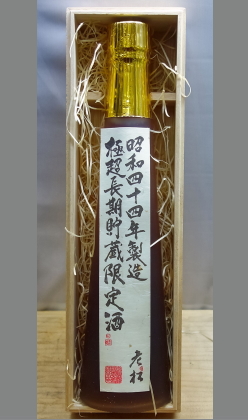 昭和四十四年製造
極超長期貯蔵限定酒
老松